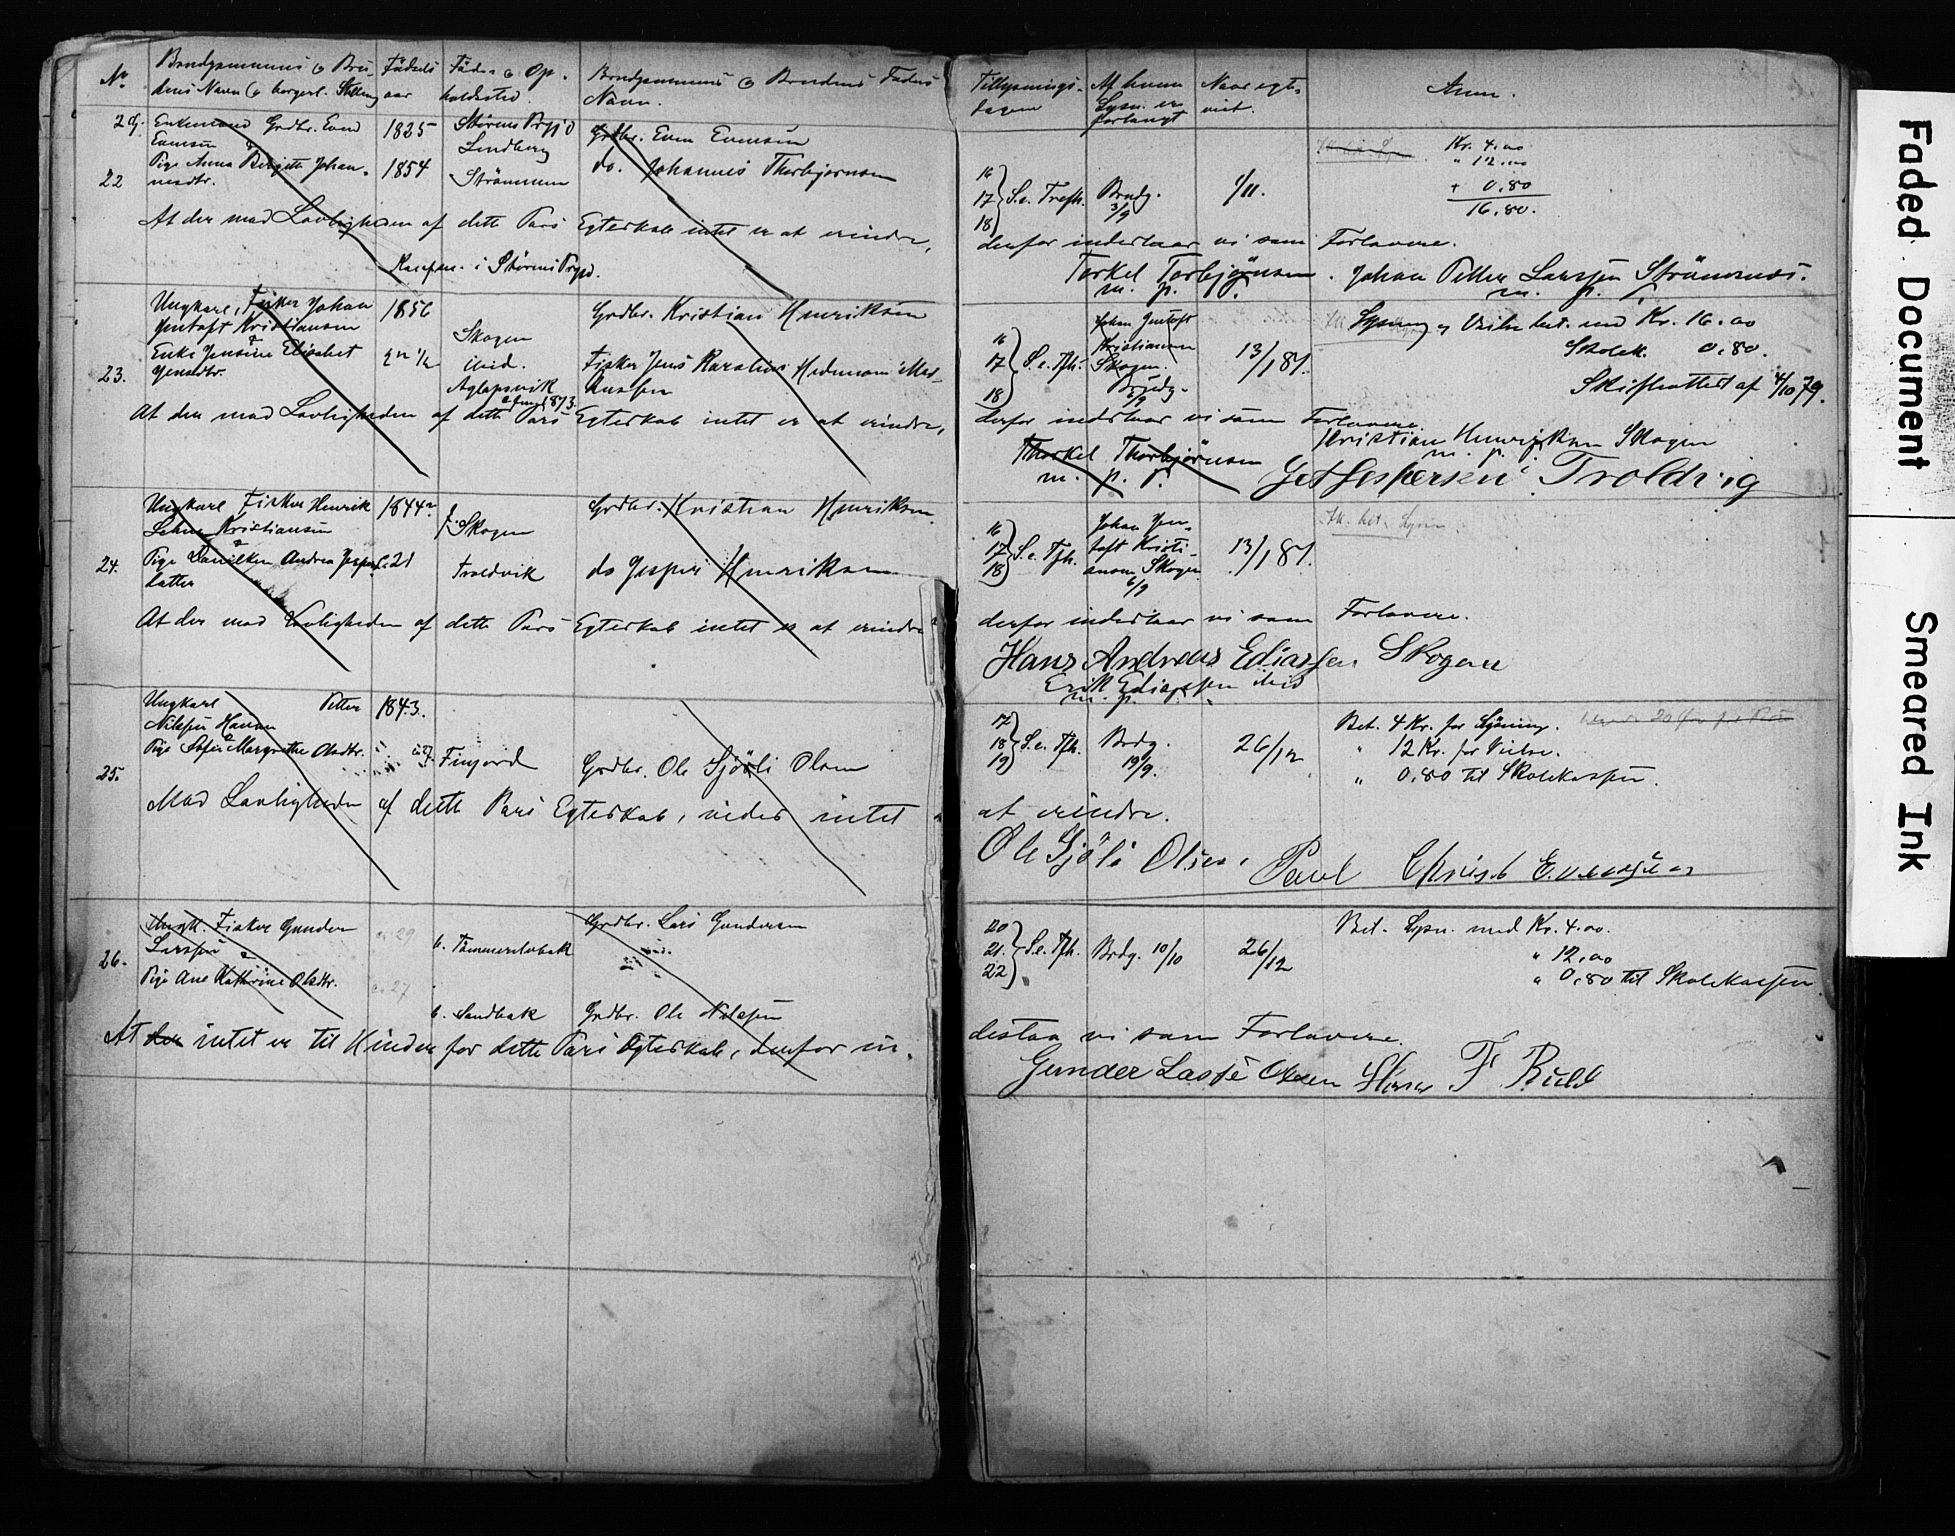 No
Brudgommens & Bru-
dens Navn & borgerl. Stilling
Fødsels
aar
Føde- & Op-
holdssted.
Brudgommens & Brudens Faders
Navn.
Tillysnings-
dagen
Af hvem
Lysn. er
forlangt
Naar egte-
viet.
Anm.
22
Enkemand Grdbr. Evend
Evensen
&
Pige Anna Birgitte Johan-
nesdtr.
1825
1854
Lindberg
Strømmen
Grdbr. Even Evensen
do. Johannes Thorbjørnsen
16
17 S. e. Trefh.
18
Brudg.
3/9
1/11.
Kr. 4.00
" 12.00
+ 0.80
16.80.
At der mod Lovligheden af dette Pars Egteskab intet er at erindre,
derfor indestaar vi som Forlovere.
Torkel Torbjørnsen. Johan Petter Larssen Strømsnes.
m. p. P.
m. p.
23.
Ungkarl, Fisker Johan
Gentoft Kristiansen
&
Enke Jensine Elisabet
Jensdtr.
1856
Skogen
ibid.
Aglapsvik
Grdbr. Kristian Henriksen
Fisker Jens
16
17 S. e. Tfh.
18
Johan Gentoft
Kristiansen
Skogen.
Brudg.
6/9
13/1 81.
Lysning & Vielse bet. med Kr. 16.00
Skolek. 0.80.
Skifteattest af 4/10 79.
At der mod Lovligheden af dette Pars Egteskab intet er at erindre,
derfor indestaar vi som Forlovere.
Kristian Henriksen Skogen
m. p.
Thorkel Thorbjørnsen
m. p. P.
Jespersen Troldvig
24.
Ungkarl Fisker Henrik
Kristiansen
&
Pige Andrea Jespers-
datter
1844
21
Skogen
Troldvik
Grdbr. Kristian Henriksen
do Jesper Henriksen
16
17 S. e. Tfh.
18
Johan Gen-
toft Kristi-
ansen Skogen
6/9
13/1 81.
At der mod Lovligheden af dette Pars Egteskab intet er at erindre
derfor indestaar vi som Forlovere.
Hans Andreas Ediassen Skogen
Erik Ediassen ibid
m. p.
25.
Ungkarl Petter
Nilssen
&
Pige Sofie Margrethe Olsdtr.
1843.
Finjord
Grdbr. Ole Sjøli Olsen
17
18 S. e. Tfh.
19
Brdg.
19/9.
26/12
Bet. 4 Kr. for Lysning.
" 12 Kr. for Vielse.
" 0.80 til Skolekassen.
Mod Lovligheden af dette Pars Egteskab, vides intet
at erindre.
Ole Sjøli Olsen, Paul Christ Evensen
26.
Ungk. Fisker Gunder
Larssen
&
Pige Ane Kathrine Olsdtr.
29
27
b. Tømmerelvbak
b. Sandbak
Grdbr. Lars Gundersen
Grdbr. Ole Nilssen
20
21. S. e. Tfh.
22
Brdg. 10/10
26/12
Bet. Lysn. med Kr. 4.00.
" 12.00
" 0.80 til Skolekassen
At der intet er til Hinder for dette Pars Egteskab, derfor in-
destaa vi som Forlovere.
Gunder Lasse Olsen F Buld
Faded Document
Smeared Ink